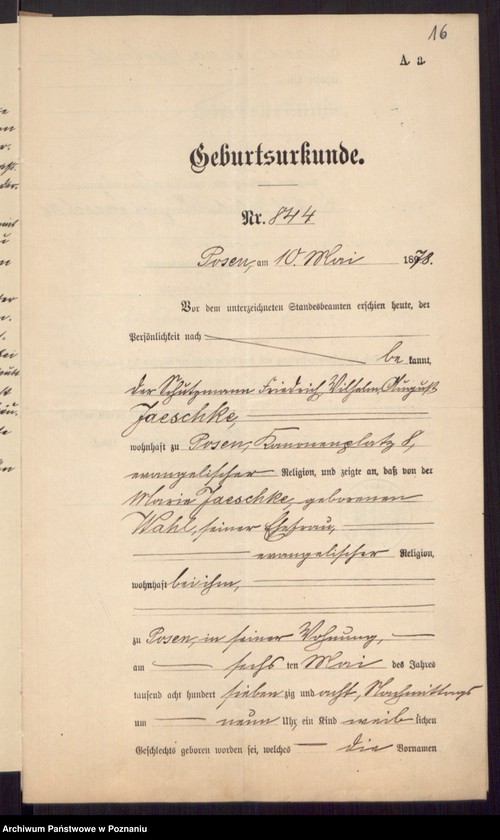 16
A. a.
Geburtsurkunde.
Nr. 844
Posen, am 10. Mai 1878.
Vor dem unterzeichneten Standesbeamten erschien heute, der
Persönlichkeit nach
be kannt,
der Schutzmann Friedrich Wilhelm August
Jaeschke,
wohnhaft zu Posen, Kanonenplatz 8,
evangelischer Religion, und zeigte an, daß von der
Marie Jaeschke, geborenen
Wahl, seiner Ehefrau,
evangelischer Religion,
wohnhaft bei ihm,
zu Posen, in seiner Wohnung,
am sechs ten Mai des Jahres
tausend acht hundert sieben zig und acht, Nachmittags
um neun Uhr, ein Kind weib lichen
Geschlechts geboren worden sei, welches die Vornamen
Archiwum Państwowe w Poznaniu